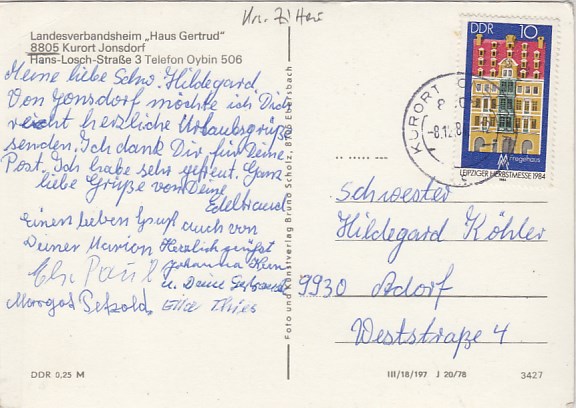 Landesverbandsheim „Haus Gertrud"
8805 Kurort Jonsdorf
Hans-Losch-Straße 3 Telefon Oybin 506
Meine liebe Schw. Hildegard
Von Jonsdorf möchte ich Dich
recht herzliche Urlaubsgrüße
senden. Ich dank Dir für Deine
Post. Ich habe sehr gefreut. Ganz
liebe Grüße von Deine
Edeltraud
Einen lieben Gruß auch von
Deiner Marion Herzlich grüßt
Johanna
Paul u. Deine
Margot Petzold, Thies
DDR 0,25 M
Foto und Kunstverlag Bruno Scholz, Ebersbach
DDR 10
Fregehaus
LEIPZIGER HERBSTMESSE 1984
KURORT
-8.12.8
Schwester
Hildegard Köhler
9930 Adorf
Weststraße 4
III/18/197 J 20/78
3427